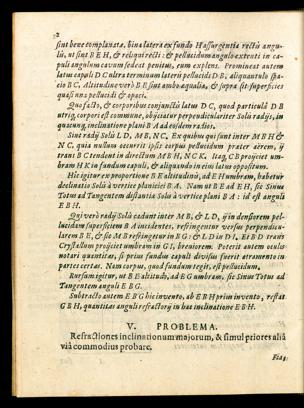 2
sint bene complanatæ, bina latera ex fundo Hassurgentia recti angu-
li, ut sint B E H, & reliqui recti: & pellucidum angulo extenti in ca-
puli angulum cavum sedeat penitus, eum explens. Promineat autem
latus capuli D C ultra terminum lateris pellucidi D B, aliquantulo spa-
cio B C, Altitudine verò B E sint ambo æqualia, & supra sit superficies
quasi una pellucidi & opaci.
Quo facto, & corporibus conjunctis latus D C, quod particulâ D B
utriq; corpori est commune, objiciatur perpendiculariter Solii radijs, in
quacunq; inclinatione plani B A ad eosdem radios.
Sint radij Solis L D, M B, N C, Ex quibus quisunt inter M B H &
N C, quia nullum occurrit ipsis corpus pellucidum præter aërem, ij
trans B C tendent in directum M E H, N C K. Itaq; C B projiciet um-
bram H K in fundum capuli, & aliquando in eius latus oppositum.
Hic igitur ex proportione B E altitudinis, ad E H umbram, habetur
declinatio Solis à vertice planiciei B A. Nam ut B E ad E H, sic Sinus
Totus ad Tangentem distantiæ Solis à vertice plani B A: id est anguli
E B H.
Qui verò radij Solis cadunt inter M B, & L D, ij in densorem pel-
lucidum superficiem B A incidentes, refringuntur versus perpendicu-
larem B E, & sic M B refringetur in B G: & L D in D I. Et B D trans
Crystallum projiciet umbram in G I, breviorem. Poterit autem oculis
notari quantitas, si prius fundus capuli divisus fuerit atramento in
partes certas. Nam corpus, quod fundum tegit, est pellucidum.
Rursum igitur, ut B E altitudo, ad E G umbram, sic Sinus Totus ad
Tangentem anguli E B G.
Subtracto autem E B G hic invento, ab E B H prius invento, restat
G B H, quantitas anguli refractorij in hac inclinatione E B H.
V. PROBLEMA.
Refractiones inclinationum majorum, & simul priores aliâ
viâ commodius probare.
Fiat